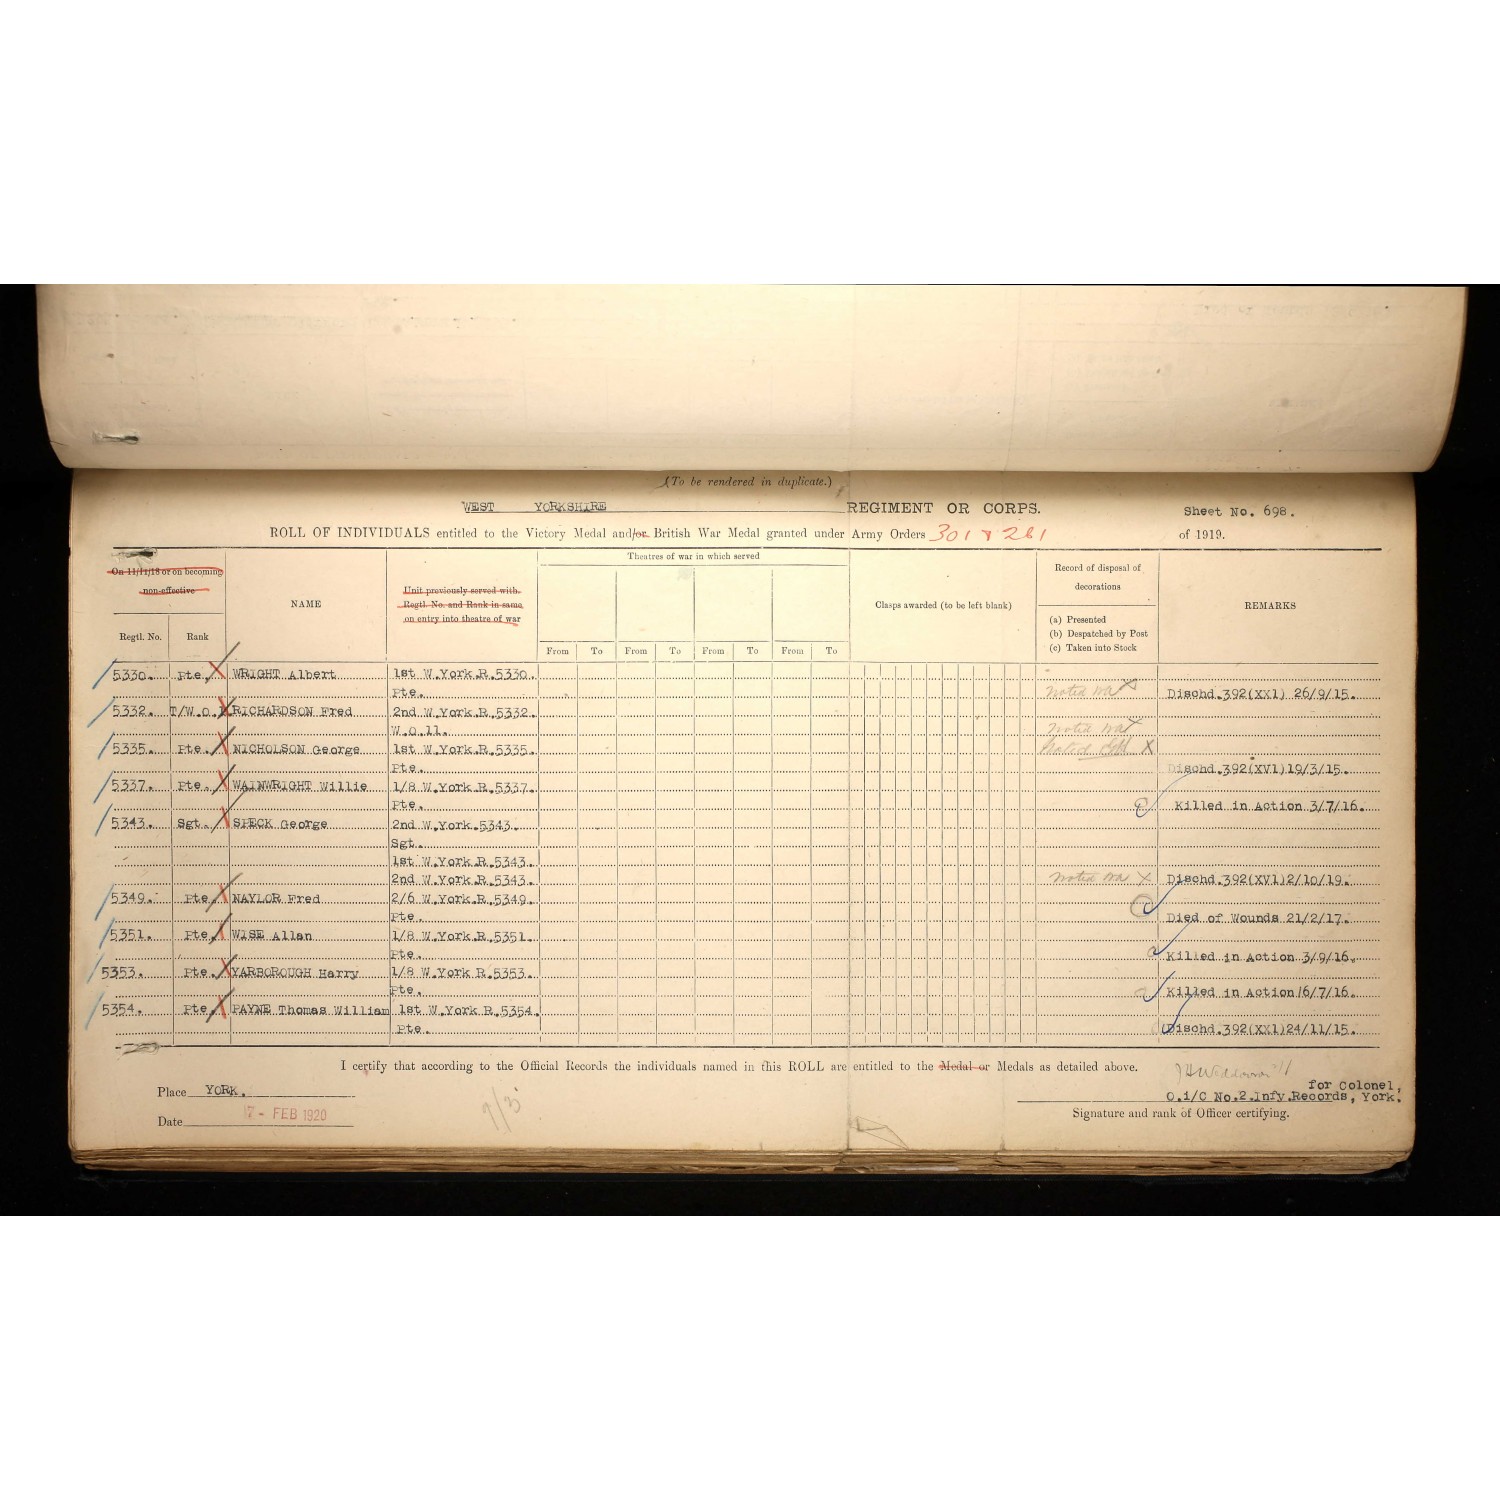 (To be rendered in duplicate.)
WEST YORKSHIRE REGIMENT OR CORPS. Sheet No. 698.
ROLL OF INDIVIDUALS entitled to the Victory Medal and/or British War Medal granted under Army Orders 301 & 261 of 1919.
On 11/11/18 or on becoming non-effective
Regtl. No. Rank
NAME
Unit previously served with. Regtl. No. and Rank in same on entry into theatre of war
Theatres of war in which served
From To From To From To From To
Clasps awarded (to be left blank)
Record of disposal of decorations
(a) Presented
(b) Despatched by Post
(c) Taken into Stock
REMARKS
5330. Pte. WRIGHT Albert 1st W.York.R.5330.
Pte. Noted Wa X Dischd.392(XX1) 26/9/15.
5332. T/W.O.1 RICHARDSON Fred 2nd W.York.R.5332.
W.O.11. Noted Wa X
5335. Pte. NICHOLSON George 1st W.York.R.5335. Noted X
Pte. Dischd.392(XV1)19/3/15.
5337. Pte. WAINWRIGHT Willie 1/8 W.York.R.5337.
Pte. Killed in Action 3/7/16.
5343. Sgt. SPECK George 2nd W.York.5343.
Sgt.
1st W.York.R.5343.
2nd W.York.R.5343. Noted Wa X Dischd.392(XV1)2/10/19.
5349. Pte. NAYLOR Fred 2/6 W.York.R.5349.
Pte. Died of Wounds 21/2/17.
5351. Pte. WISE Allan 1/8 W.York.R.5351.
Pte. Killed in Action 3/9/16.
5353. Pte. YARBOROUGH Harry 1/8 W.York.R.5353.
Pte. Killed in Action 16/7/16.
5354. Pte. PAYNE Thomas William 1st W.York R.5354.
Pte. Dischd.392(XX1)24/11/15.
I certify that according to the Official Records the individuals named in this ROLL are entitled to the Medal or Medals as detailed above.
Place YORK.
for Colonel,
O.i/C No.2.Infy.Records, York.
Date 17 - FEB 1920
Signature and rank of Officer certifying.